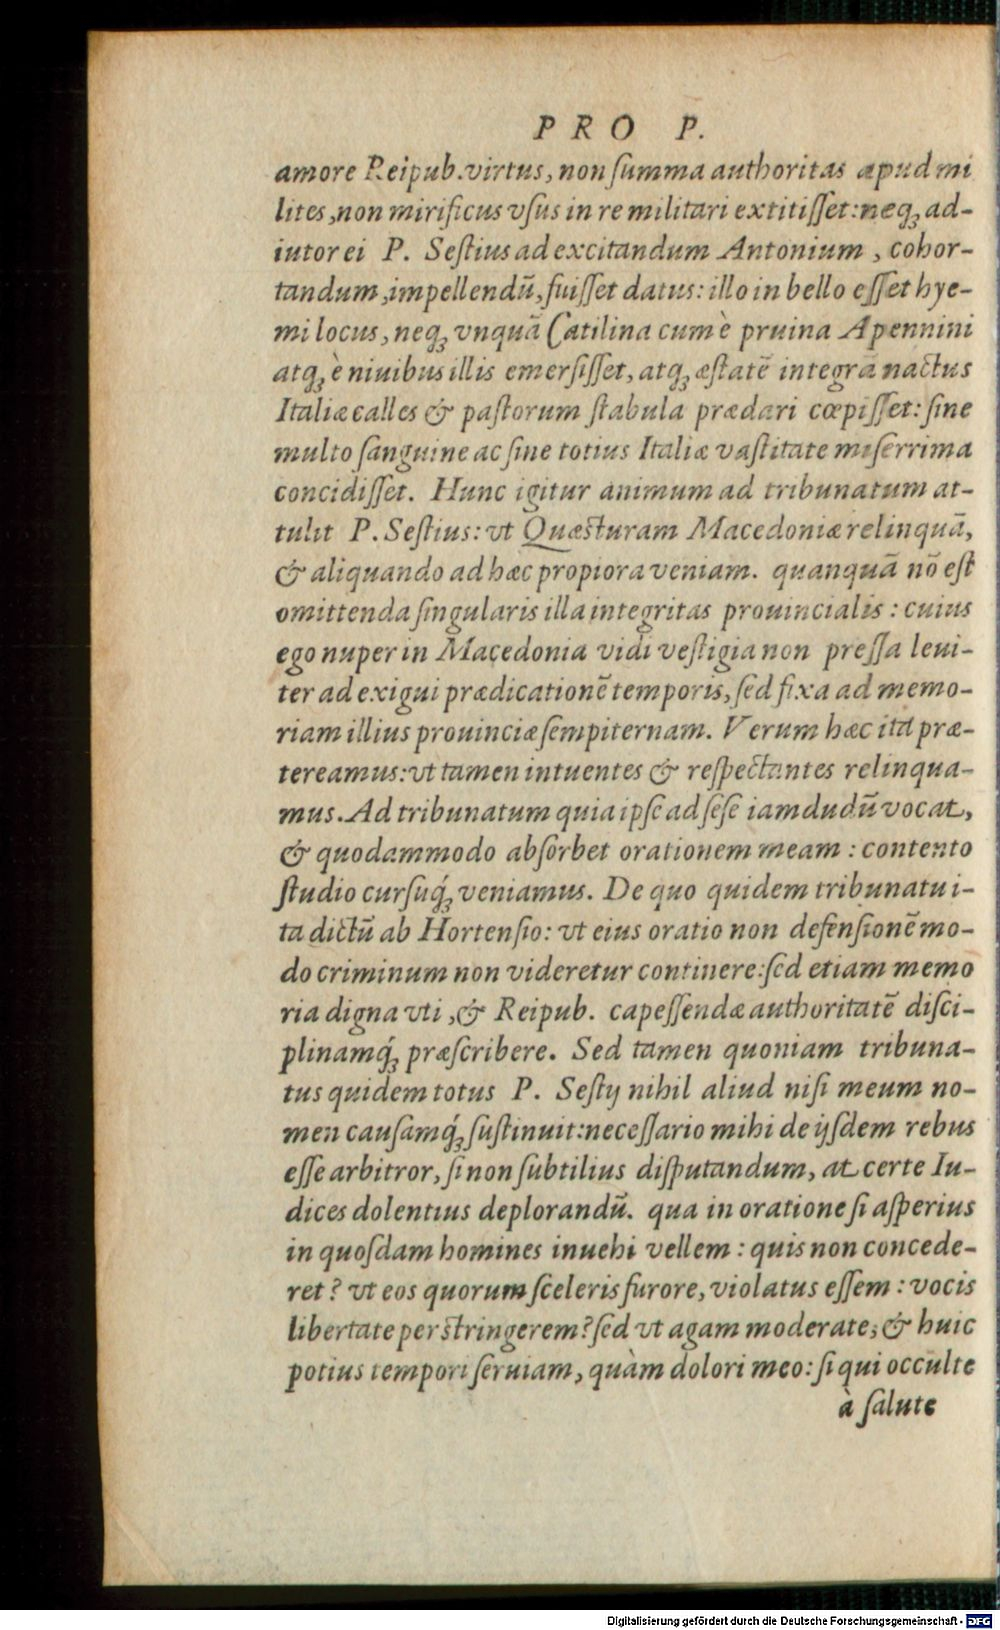 PRO P.
amore Reipub. virtus, non ſumma authoritas apud mi
lites, non mirificus vſus in re militari extitiſſet: neqꝫ ad-
iutor ei P. Seſtius ad excitandum Antonium, cohor-
tandum, impellendũ, fuiſſet datus: illo in bello eſſet hye-
mi locus, neqꝫ vnquã Catilina cum è pruina Apennini
atqꝫ è niuibus illis emerſiſſet, atqꝫ æſtatẽ integrã nactus
Italiæ calles & paſtorum ſtabula prædari cœpiſſet: ſine
multo ſanguine ac ſine totius Italiæ vaſtitate miſerrima
concidiſſet. Hunc igitur animum ad tribunatum at-
tulit P. Seſtius: vt Quæſturam Macedoniæ relinquã,
& aliquando ad hæc propiora veniam. quanquã nõ eſt
omittenda ſingularis illa integritas prouincialis: cuius
ego nuper in Macedonia vidi veſtigia non preſſa leui-
ter ad exigui prædicationẽ temporis, ſed fixa ad memo-
riam illius prouinciæ ſempiternam. Verum hæc ita præ-
tereamus: vt tamen intuentes & reſpectantes relinqua-
mus. Ad tribunatum quia ipſe ad ſeſe iamdudũ vocat,
& quodammodo abſorbet orationem meam: contento
ſtudio curſuq́ꝫ veniamus. De quo quidem tribunatu i-
ta dictũ ab Hortenſio: vt eius oratio non defenſionẽ mo-
do criminum non videretur continere: ſed etiam memo
ria digna vti, & Reipub. capeſſendæ authoritatẽ diſci-
plinamq́ꝫ præſcribere. Sed tamen quoniam tribuna-
tus quidem totus P. Seſtij nihil aliud niſi meum no-
men cauſamq́ꝫ ſuſtinuit: neceſſario mihi de ijſdem rebus
eſſe arbitror, ſi non ſubtilius diſputandum, at certe Iu-
dices dolentius deplorandũ. qua in oratione ſi aſperius
in quoſdam homines inuehi vellem: quis non concede-
ret? vt eos quorum ſceleris furore, violatus eſſem: vocis
libertate perſtringerem? ſed vt agam moderate; & huic
potius tempori ſeruiam, quàm dolori meo: ſi qui occulte
à ſalute
Digitalisierung gefördert durch die Deutsche Forschungsgemeinschaft - DFG